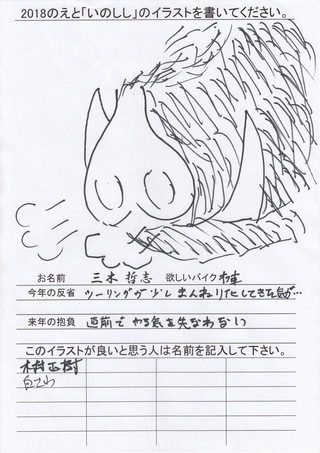 2018のえと「いのしし」のイラストを書いてください。
お名前 三木 哲志 欲しいバイク
今年の反省 ツーリングが少しまんねり化してきた気が…
来年の抱負 直前でやる気を失なわない
このイラストが良いと思う人は名前を記入して下さい。
木村正樹